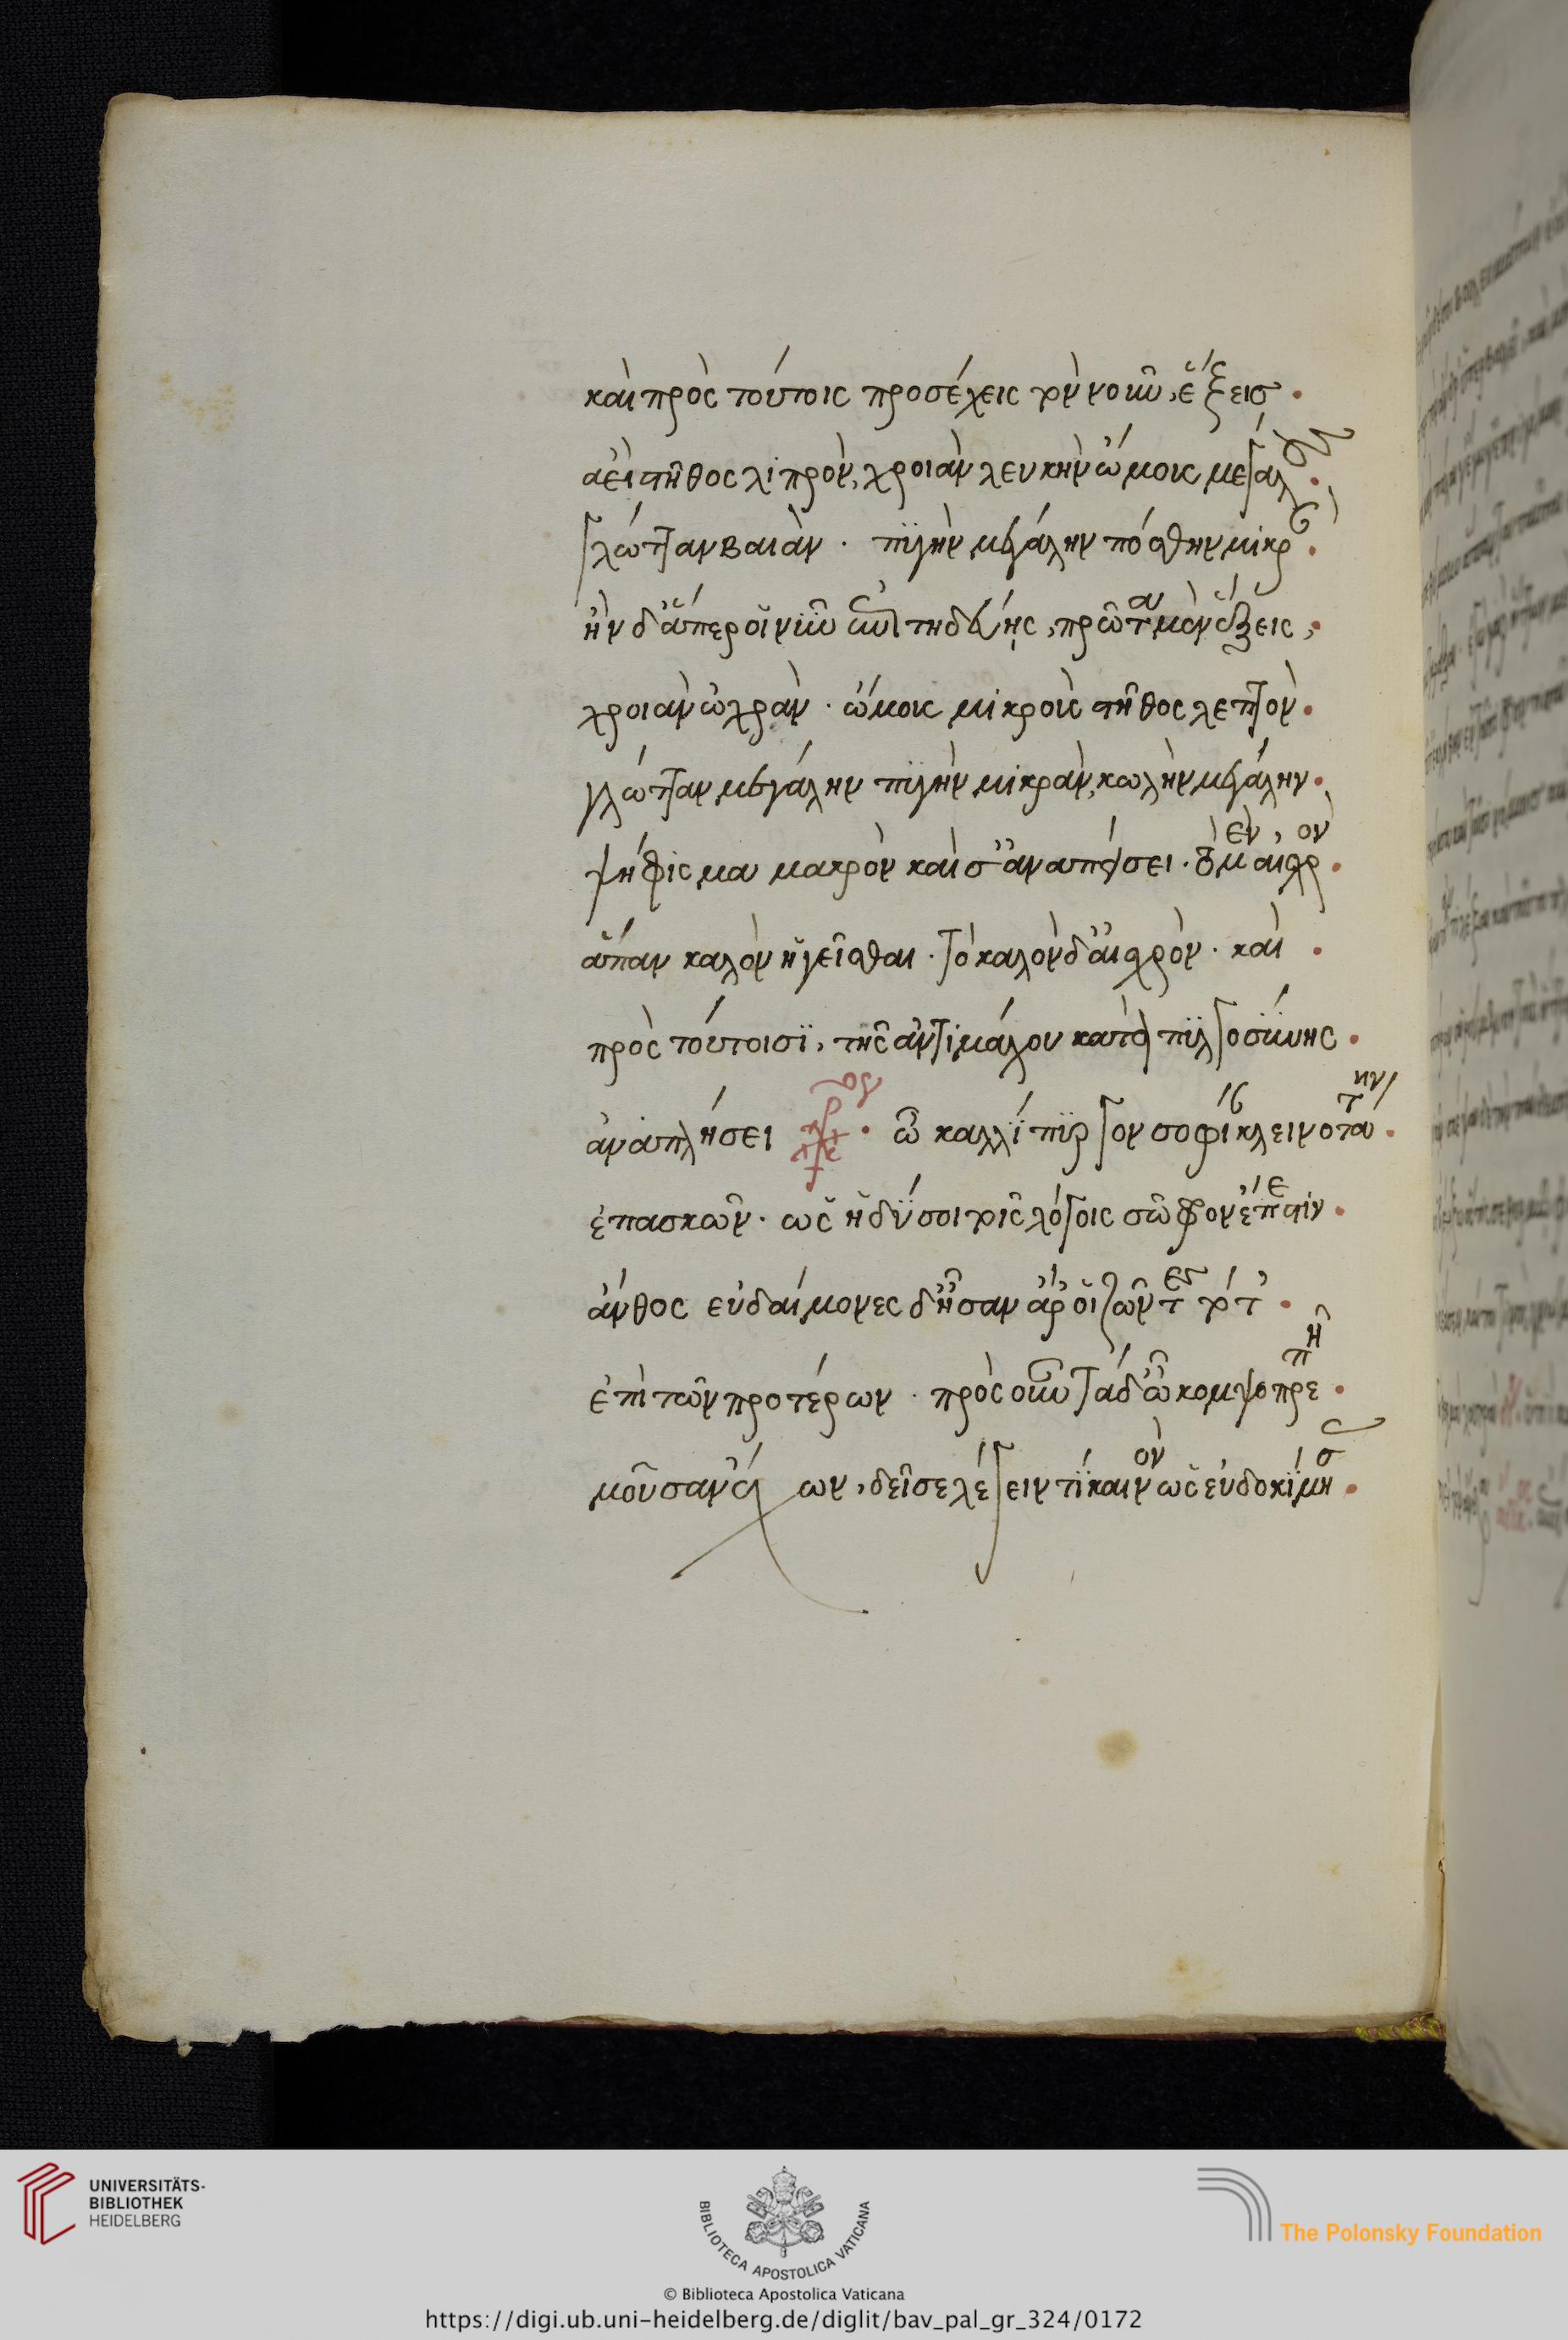 καὶ πρὸς τούτοις προσέχεις τὸν νοῦν, ἕξεις ·
ἀεὶ στῆθος λιπρὸν, χροιὰν λευκὴν ὤμους μεγάλους ·
γλώτταν βαιὰν · πϋγὴν μεγάλην πόσθην μικρὰν ·
ἢν δ' ἅπερ οἱ νῦν ἐπιτηδεύῃς, πρῶτα μὲν ἕξεις, ·
χροιὰν ὠχρὰν · ὤμους μικροὺς στῆθος λεπτὸν ·
γλώτταν μεγάλην πϋγὴν μικρὰν, κωλὴν μεγάλην ·
ψήφισμα μακρὸν καὶ σ' ἀναπείσει · τὸ μὲν αἰσχρὸν ·
ἅπαν καλὸν ἡγεῖσθαι · τὸ καλὸν δ' αἰσχρὸν · καὶ ·
πρὸς τούτοισϊ, τῆς ἀντιμάχου καταπϋγοσύνης ·
ἀναπλήσει · ὦ καλλίπϋργον σοφίαν κλεινοτάτην ·
ἐπασκῶν · ὡς ἡδύ σοι τοῖς λόγοις σῶφρον ἔπεστιν ·
ἄνθος εὐδαίμονες δ' ἦσαν ἄρ' οἱ ζῶντες τότ' ·
ἐπὶ τῶν προτέρων · πρὸς οὖν τάδ' ὦ κομψοπρεπῆ ·
μοῦσαν ἔχων, δεῖ σε λέγειν τὶ καινὸν ὡς εὐδοκίμησ ·
UNIVERSITÄTS-
BIBLIOTHEK
HEIDELBERG
BIBLIOTECA APOSTOLICA VATICANA
The Polonsky Foundation
© Biblioteca Apostolica Vaticana
https://digi.ub.uni-heidelberg.de/diglit/bav_pal_gr_324/0172